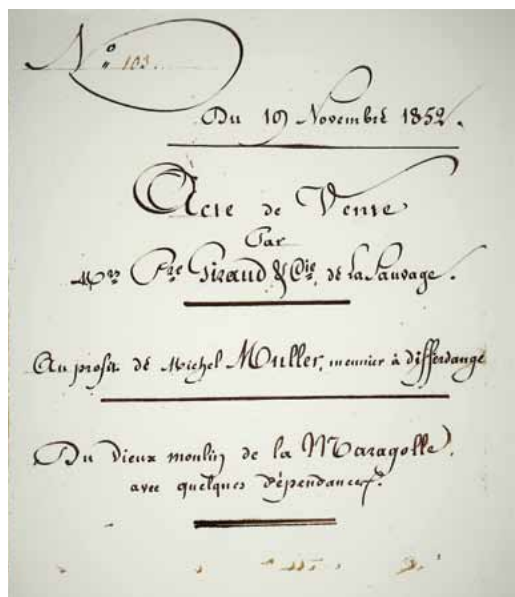 N° 103.
Du 19 Novembre 1852.
Acte de Vente
Par
Mrs Pre Giraud & Cie, de la Sauvage.
Au profit de Michel Muller, meunier à differdange
Du Vieux moulin de la Maragolle,
avec quelques Dépendances.